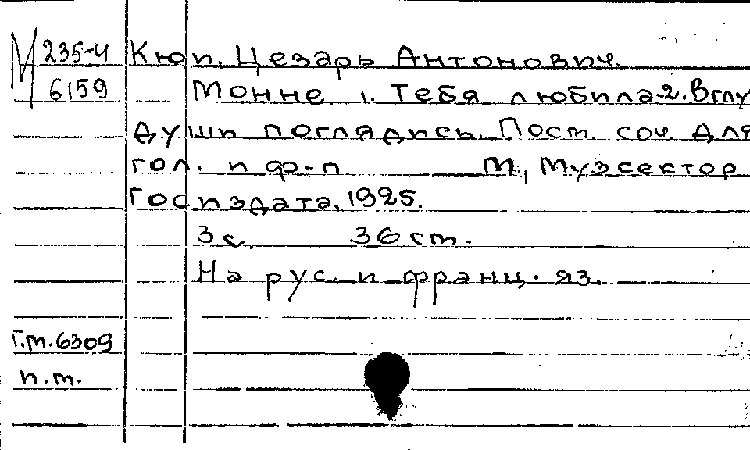 М 235-4
6159
Кюи. Цезарь Антонович.
Монне. 1. Тебя любила. 2. В глу
души поглядись. Пост. соч. Для
гол. и ф-п М., Музсектор
Госиздата, 1925.
3 с. 36 ст.
На рус. и франц. яз.
Г.т. 6309
п.т.